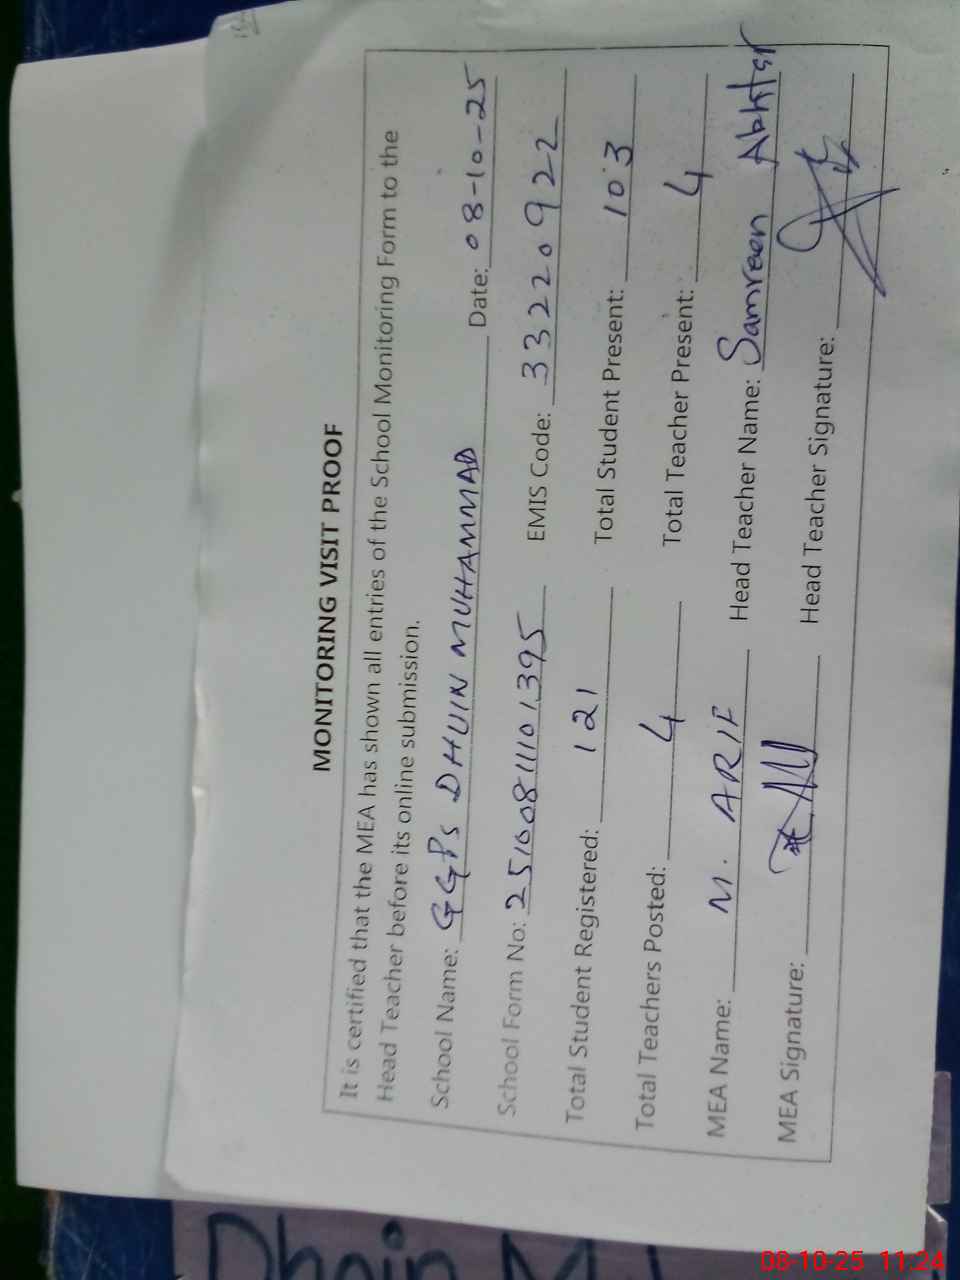 MONITORING VISIT PROOF
It is certified that the MEA has shown all entries of the School Monitoring Form to the
Head Teacher before its online submission.
School Name: GGPS DHUIN MUHAMMAD Date: 08-10-25
School Form No: 25100811101395 EMIS Code: 33220922
Total Student Registered: 121 Total Student Present: 103
Total Teachers Posted: 4 Total Teacher Present: 4
MEA Name: M. ARIF Head Teacher Name: Samreen Akhter
MEA Signature: Head Teacher Signature:
Dhoin M
08-10-25 11:24